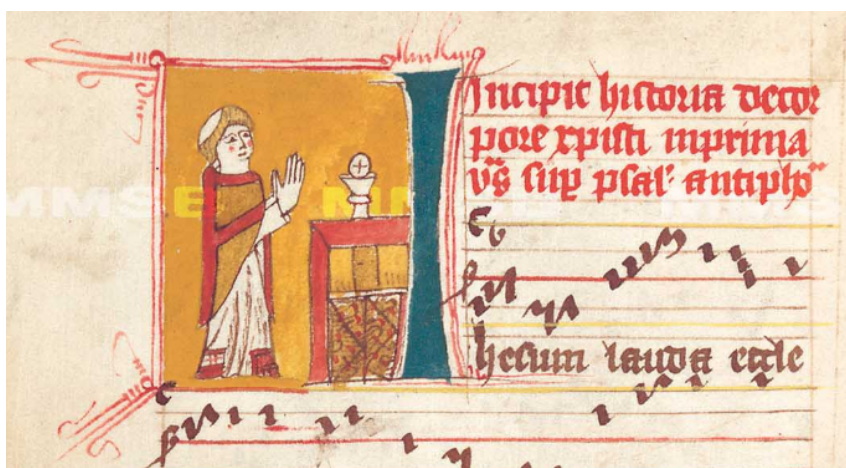 Incipit historia decor
pore xpisti inprima
vs sup psal' antipho
I
hesum lauda eccle